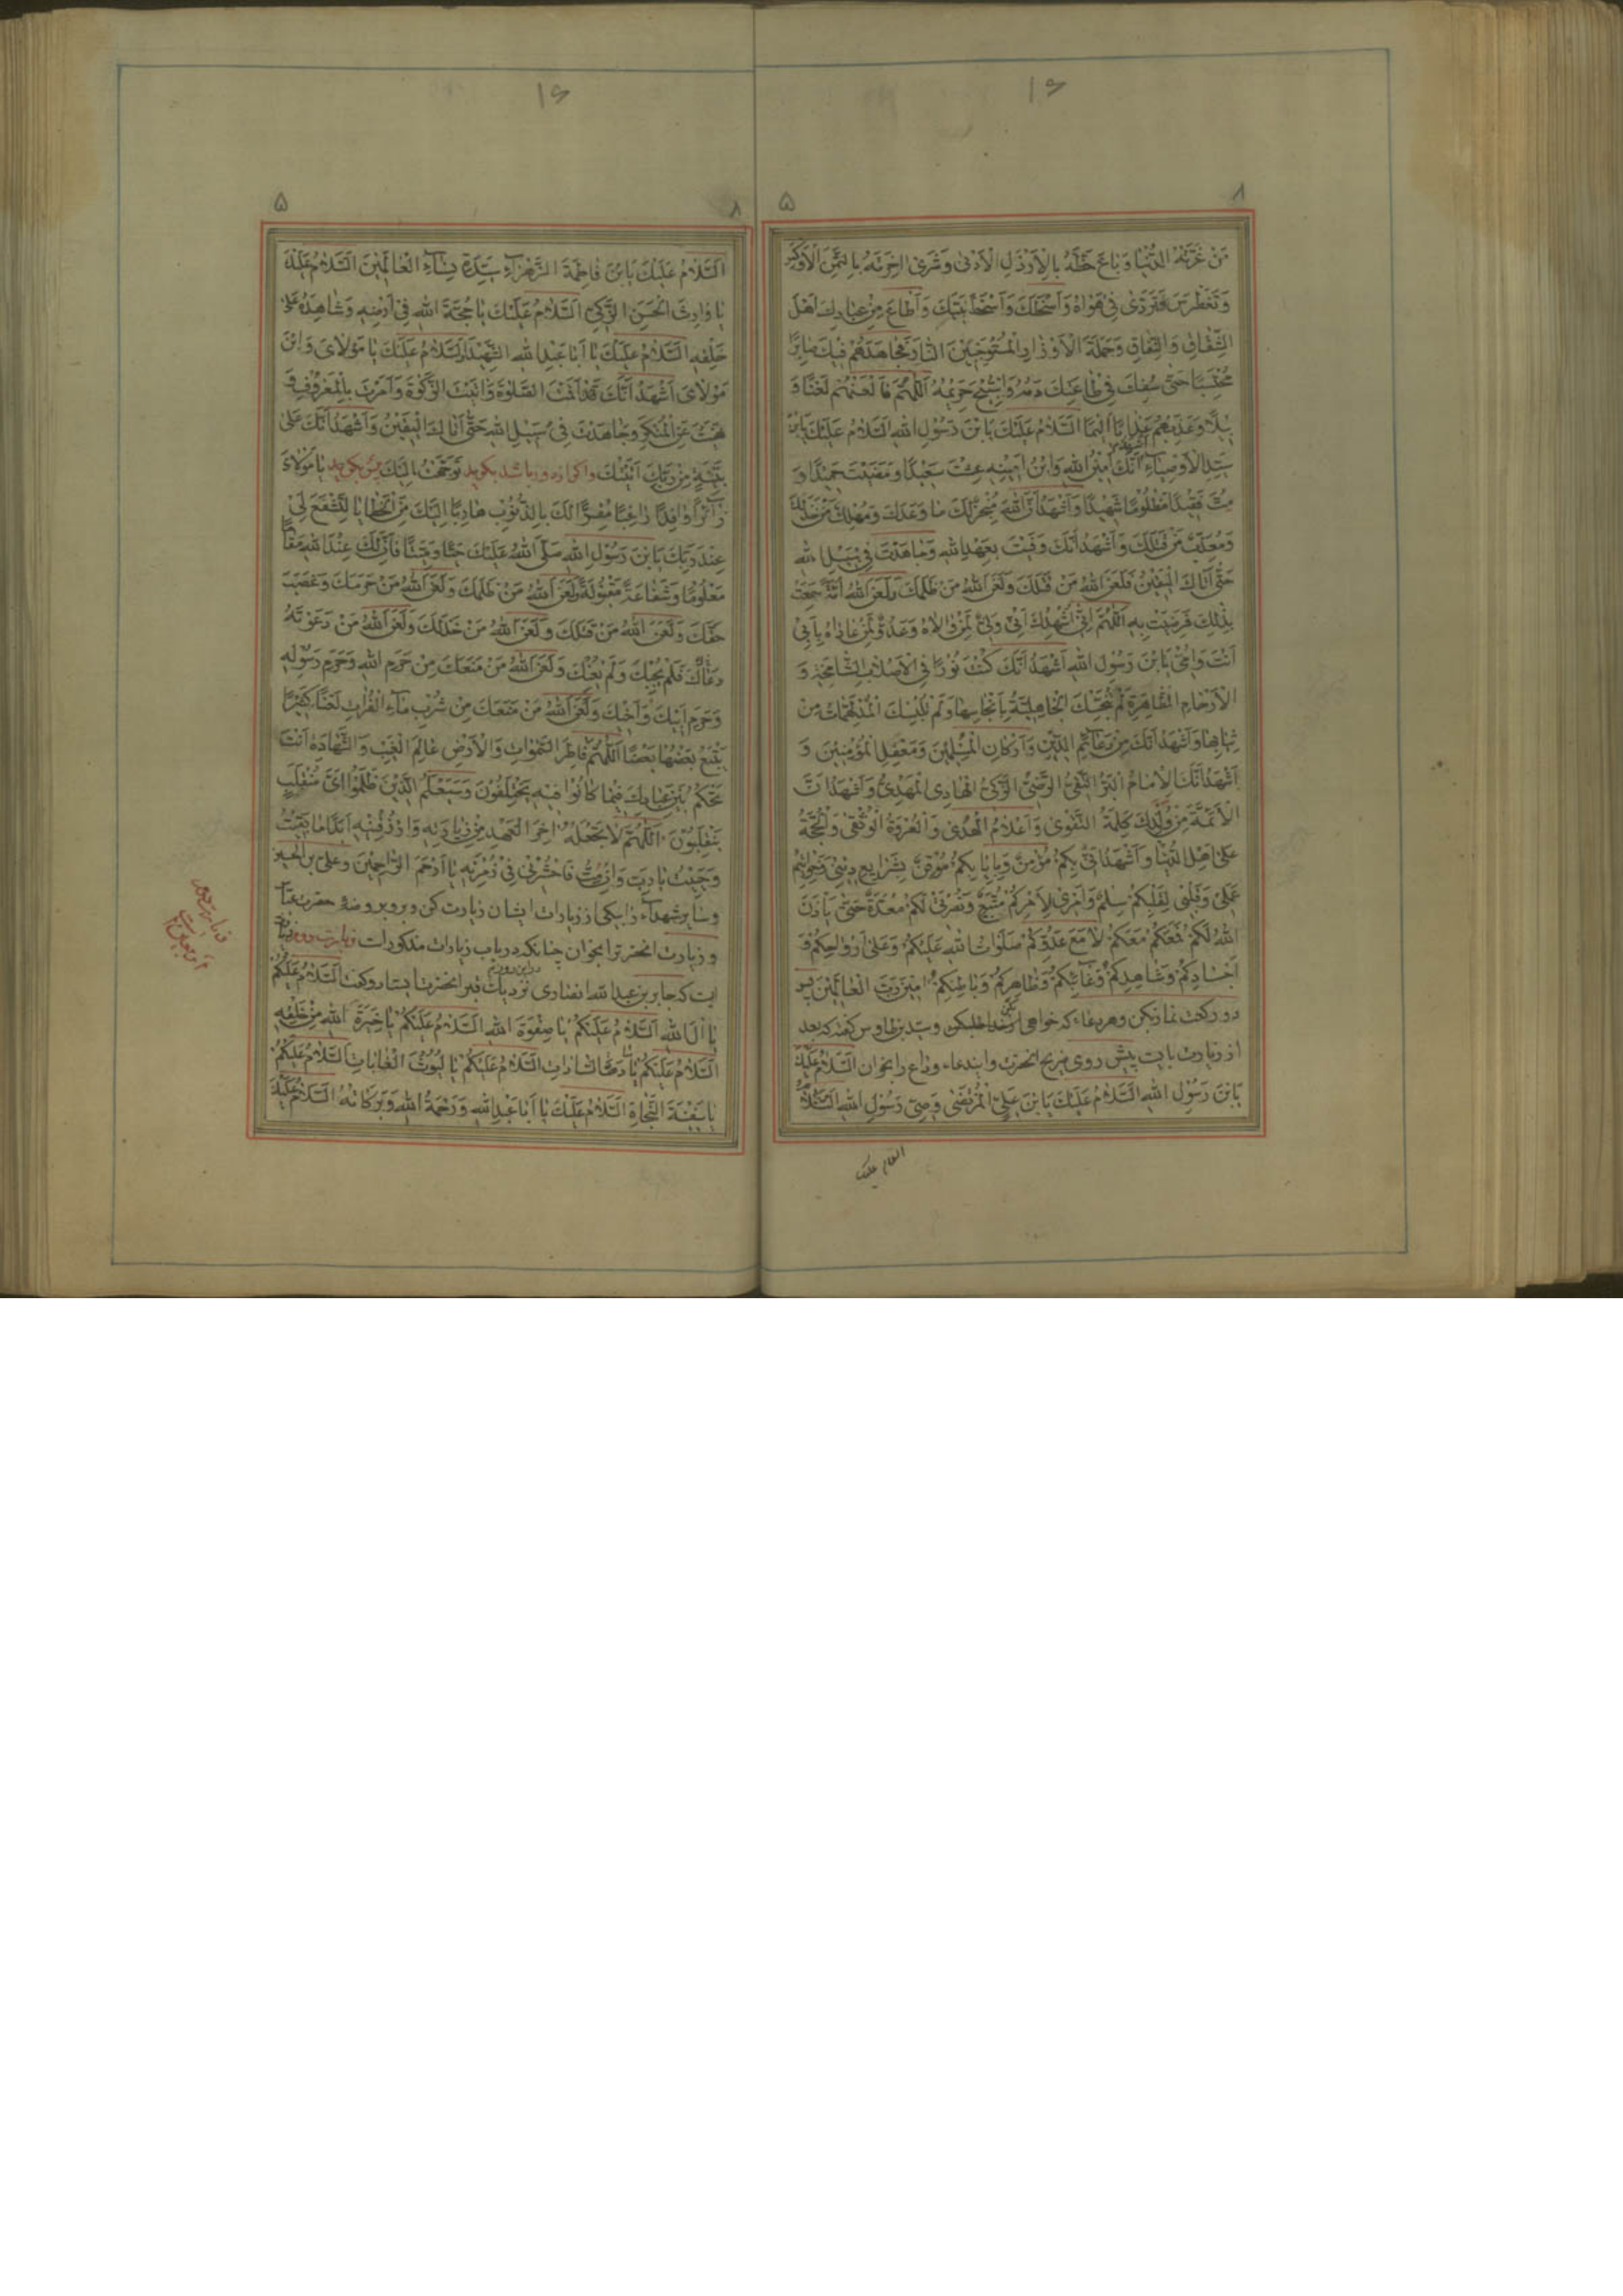 مَنْ غَرَّتْهُ الدُّنْيَا وَبَاعَ حَظَّهُ بِالْاَرْذَلِ الْاَدْنٰى وَشَرٰى اٰخِرَتَهُ بِالثَّمَنِ الْاَوْكَسِ
وَتَغَطْرَسَ وَتَرَدّٰى فِىْ هَوَاهُ وَاَسْخَطَكَ وَاَسْخَطَ نَبِيَّكَ وَاَطَاعَ مِنْ عِبَادِكَ اَهْلَ
الشِّقَاقِ وَالنِّفَاقِ وَحَمَلَةَ الْاَوْزَارِ الْمُسْتَوْجِبِيْنَ النَّارَ فَجَاهَدَهُمْ فِيْكَ صَابِرًا
مُحْتَسِبًا حَتّٰى سُفِكَ فِىْ طَاعَتِكَ دَمُهُ وَاسْتُبِيْحَ حَرِيْمُهُ اَللّٰهُمَّ فَالْعَنْهُمْ لَعْنًا وَ
بِيْلًا وَعَذِّبْهُمْ عَذَابًا اَلِيْمًا اَلسَّلَامُ عَلَيْكَ يَابْنَ رَسُوْلِ اللهِ اَلسَّلَامُ عَلَيْكَ يَابْنَ
سَيِّدِ الْاَوْصِيَاءِ اَشْهَدُ اَنَّكَ اَمِيْنُ اللهِ وَابْنُ اَمِيْنِهِ عِشْتَ سَعِيْدًا وَمَضَيْتَ حَمِيْدًا وَ
مُتَّ فَقِيْدًا مَظْلُوْمًا شَهِيْدًا وَاَشْهَدُ اَنَّ اللهَ مُنْجِزٌ لَكَ مَا وَعَدَكَ وَمُهْلِكٌ مَنْ خَذَلَكَ
وَمُعَذِّبٌ مَنْ قَتَلَكَ وَاَشْهَدُ اَنَّكَ وَفَيْتَ بِعَهْدِ اللهِ وَجَاهَدْتَ فِىْ سَبِيْلِ اللهِ
حَتّٰى اَتَاكَ الْيَقِيْنُ فَلَعَنَ اللهُ مَنْ قَتَلَكَ وَلَعَنَ اللهُ مَنْ ظَلَمَكَ وَلَعَنَ اللهُ اُمَّةً سَمِعَتْ
بِذٰلِكَ فَرَضِيَتْ بِهِ اَللّٰهُمَّ اِنِّىْ اُشْهِدُكَ اَنِّىْ وَلِىٌّ لِمَنْ وَالَاهُ وَعَدُوٌّ لِمَنْ عَادَاهُ بِاَبِىْ
اَنْتَ وَاُمِّىْ يَابْنَ رَسُوْلِ اللهِ اَشْهَدُ اَنَّكَ كُنْتَ نُوْرًا فِى الْاَصْلَابِ الشَّامِخَةِ وَ
الْاَرْحَامِ الطَّاهِرَةِ لَمْ تُنَجِّسْكَ الْجَاهِلِيَّةُ بِاَنْجَاسِهَا وَلَمْ تُلْبِسْكَ الْمُدْلَهِمَّاتُ مِنْ
ثِيَابِهَا وَاَشْهَدُ اَنَّكَ مِنْ دَعَائِمِ الدِّيْنِ وَاَرْكَانِ الْمُسْلِمِيْنَ وَمَعْقِلِ الْمُؤْمِنِيْنَ وَ
اَشْهَدُ اَنَّكَ الْاِمَامُ الْبَرُّ التَّقِىُّ الرَّضِىُّ الزَّكِىُّ الْهَادِى الْمَهْدِىُّ وَاَشْهَدُ اَنَّ
الْاَئِمَّةَ مِنْ وُلْدِكَ كَلِمَةُ التَّقْوٰى وَاَعْلَامُ الْهُدٰى وَالْعُرْوَةُ الْوُثْقٰى وَالْحُجَّةُ
عَلٰى اَهْلِ الدُّنْيَا وَاَشْهَدُ اَنِّىْ بِكُمْ مُؤْمِنٌ وَبِاِيَابِكُمْ مُوْقِنٌ بِشَرَايِعِ دِيْنِىْ وَخَوَاتِيْمِ
عَمَلِىْ وَقَلْبِىْ لِقَلْبِكُمْ سِلْمٌ وَاَمْرِىْ لِاَمْرِكُمْ مُتَّبِعٌ وَنُصْرَتِىْ لَكُمْ مُعَدَّةٌ حَتّٰى يَاْذَنَ
اللهُ لَكُمْ فَمَعَكُمْ مَعَكُمْ لَا مَعَ عَدُوِّكُمْ صَلَوَاتُ اللهِ عَلَيْكُمْ وَعَلٰى اَرْوَاحِكُمْ وَ
اَجْسَادِكُمْ وَشَاهِدِكُمْ وَغَائِبِكُمْ وَظَاهِرِكُمْ وَبَاطِنِكُمْ اٰمِيْنَ رَبَّ الْعَالَمِيْنَ پس
دو رکعت نماز بکن و هر دعاء که خواهی از خدا طلب کن و سید بن طاوس گفته که بعد
از زیارت بایست پیش روی ضریح انحضرت و ایندعاء وداع را بخوان اَلسَّلَامُ عَلَيْكَ
يَابْنَ رَسُوْلِ اللهِ اَلسَّلَامُ عَلَيْكَ يَابْنَ عَلِىٍّ الْمُرْتَضٰى وَصِىِّ رَسُوْلِ اللهِ اَلسَّلَامُ
السلام علیک
اَلسَّلَامُ عَلَيْكَ يَابْنَ فَاطِمَةَ الزَّهْرَاءِ سَيِّدَةِ نِسَاءِ الْعَالَمِيْنَ اَلسَّلَامُ عَلَيْكَ
يَا وَارِثَ الْحَسَنِ الزَّكِىِّ اَلسَّلَامُ عَلَيْكَ يَا حُجَّةَ اللهِ فِىْ اَرْضِهِ وَشَاهِدَهُ عَلٰى
خَلْقِهِ اَلسَّلَامُ عَلَيْكَ يَا اَبَا عَبْدِ اللهِ الشَّهِيْدِ اَلسَّلَامُ عَلَيْكَ يَا مَوْلَاىَ وَابْنَ
مَوْلَاىَ اَشْهَدُ اَنَّكَ قَدْ اَقَمْتَ الصَّلٰوةَ وَاٰتَيْتَ الزَّكٰوةَ وَاَمَرْتَ بِالْمَعْرُوْفِ وَ
نَهَيْتَ عَنِ الْمُنْكَرِ وَجَاهَدْتَ فِىْ سَبِيْلِ اللهِ حَتّٰى اَتَاكَ الْيَقِيْنُ وَاَشْهَدُ اَنَّكَ عَلٰى
بَيِّنَةٍ مِنْ رَبِّكَ اَتَيْتُكَ واگر از دور باشد بگوید تَوَجَّهْتُ اِلَيْكَ پس بگوید يَا مَوْلَاىَ
زَائِرًا وَافِدًا رَاغِبًا مُقِرًّا لَكَ بِالذُّنُوْبِ هَارِبًا اِلَيْكَ مِنَ الْخَطَايَا لِتَشْفَعَ لِىْ
عِنْدَ رَبِّكَ يَابْنَ رَسُوْلِ اللهِ صَلَّى اللهُ عَلَيْكَ حَيًّا وَمَيِّتًا فَاِنَّ لَكَ عِنْدَ اللهِ مَقَامًا
مَعْلُوْمًا وَشَفَاعَةً مَقْبُوْلَةً لَعَنَ اللهُ مَنْ ظَلَمَكَ وَلَعَنَ اللهُ مَنْ حَرَمَكَ وَغَصَبَ
حَقَّكَ وَلَعَنَ اللهُ مَنْ قَتَلَكَ وَلَعَنَ اللهُ مَنْ خَذَلَكَ وَلَعَنَ اللهُ مَنْ دَعَوْتَهُ
فَلَمْ يُجِبْكَ وَلَمْ يُعِنْكَ وَلَعَنَ اللهُ مَنْ مَنَعَكَ مِنْ حَرَمِ اللهِ وَحَرَمِ رَسُوْلِهِ
وَحَرَمِ اَبِيْكَ وَاَخِيْكَ وَلَعَنَ اللهُ مَنْ مَنَعَكَ مِنْ شُرْبِ مَاءِ الْفُرَاتِ لَعْنًا كَثِيْرًا
يَتْبَعُ بَعْضُهَا بَعْضًا اَللّٰهُمَّ فَاطِرَ السَّمٰوَاتِ وَالْاَرْضِ عَالِمَ الْغَيْبِ وَالشَّهَادَةِ اَنْتَ
تَحْكُمُ بَيْنَ عِبَادِكَ فِيْمَا كَانُوْا فِيْهِ يَخْتَلِفُوْنَ وَسَيَعْلَمُ الَّذِيْنَ ظَلَمُوْا اَىَّ مُنْقَلَبٍ
يَنْقَلِبُوْنَ اَللّٰهُمَّ لَا تَجْعَلْهُ اٰخِرَ الْعَهْدِ مِنْ زِيَارَتِهِ وَارْزُقْنِيْهِ اَبَدًا مَا بَقِيْتُ
وَحَيِيْتُ يَا رَبِّ وَاِنْ مُتُّ فَاحْشُرْنِىْ فِىْ زُمْرَتِهِ يَا اَرْحَمَ الرَّاحِمِيْنَ وعلی بن الحسین
وسایر شهداء را بیکی از زیارات ایشان زیارت کن و برو بروضه حضرت عباس
و زیارت انحضرترا بخوان چنانکه در باب زیارات مذکور است زیارت دویم
این است که جابر بن عبدالله انصاری نزدیک قبر انحضرت ایستاد و گفت اَلسَّلَامُ عَلَيْكُمْ
يَا اٰلَ اللهِ اَلسَّلَامُ عَلَيْكُمْ يَا صِفْوَةَ اللهِ اَلسَّلَامُ عَلَيْكُمْ يَا خِيَرَةَ اللهِ مِنْ خَلْقِهِ
اَلسَّلَامُ عَلَيْكُمْ يَا سَادَةَ السَّادَاتِ اَلسَّلَامُ عَلَيْكُمْ يَا لُيُوْثَ الْغَابَاتِ اَلسَّلَامُ عَلَيْكُمْ
يَا سَفِيْنَةَ النَّجَاةِ اَلسَّلَامُ عَلَيْكَ يَا اَبَا عَبْدِ اللهِ وَرَحْمَةُ اللهِ وَبَرَكَاتُهُ اَلسَّلَامُ عَلَيْكَ